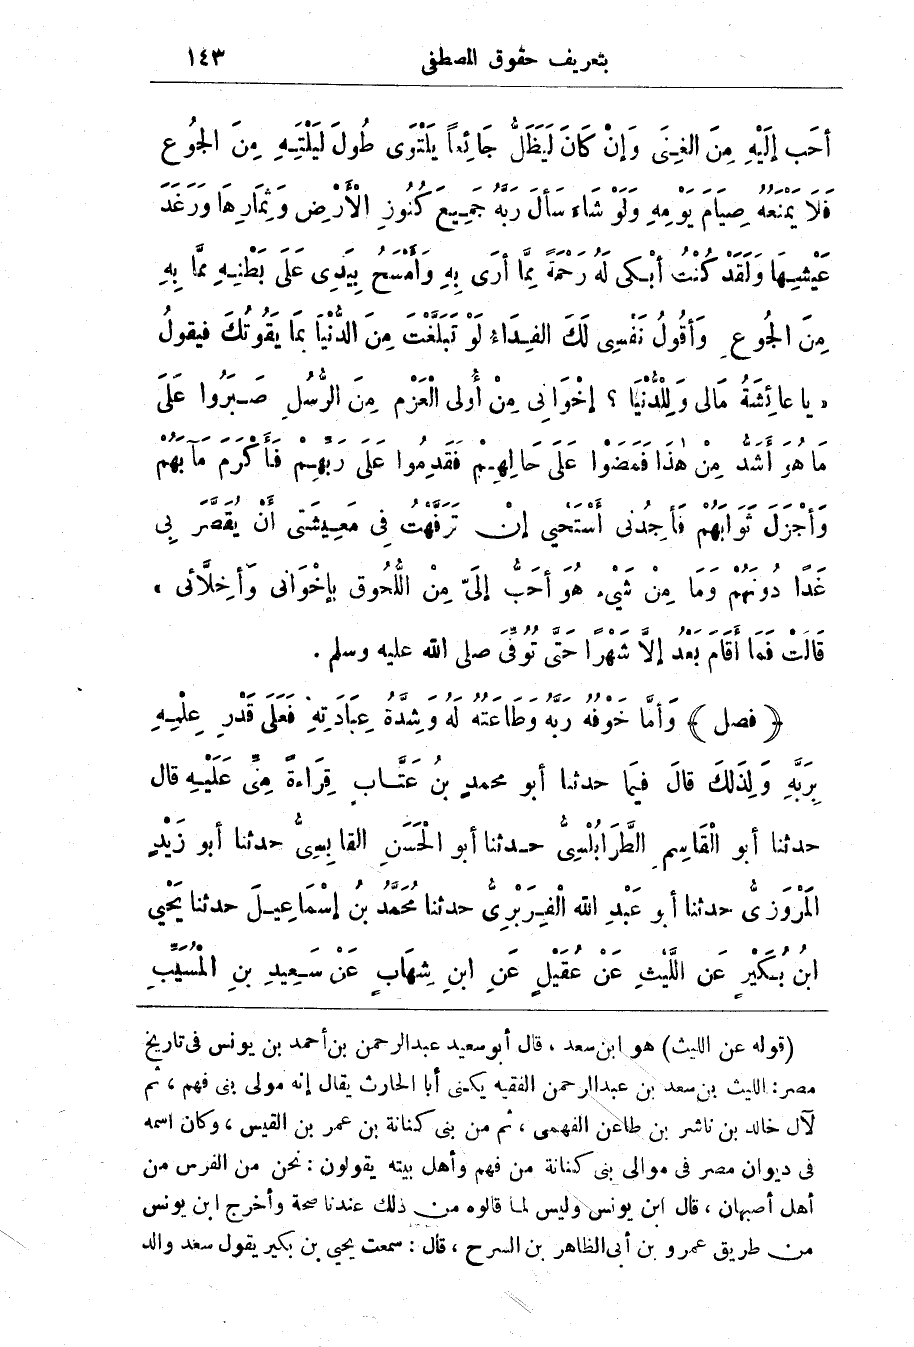 بتعريف حقوق المصطفى ١٤٣
أَحَب إِلَيْهِ مِنَ الغِنَى وَإِنْ كَانَ لَيَظَلُّ جَائِعاً يَلْتَوَى طُولَ لَيْلَتِهِ مِنَ الجُوعِ
فَلَا يَمْنَعُهُ صِيَامَ يَوْمِهِ وَلَوْ شَاءَ سَأَلَ رَبَّهُ جَمِيعَ كُنُوزِ الْأَرْضِ وَثِمَارِهَا وَرَغَدَ
عَيْشِهَا وَلَقَدْ كُنْتُ أَبْكى لَهُ رَحْمَةً مِمَّا أَرَى بِهِ وَأَمْسَحُ بِيَدِى عَلَى بَطْنِهِ مِمَّا بِهِ
مِنَ الجُوعِ وَأَقُولُ نَفْسِى لَكَ الفِدَاءُ لَوْ تَبَلَّغْتَ مِنَ الدُّنْيَا بِمَا يَقُوتُكَ فيقولُ
« يا عائِشَةُ مَالى وَلِلدُّنْيَا ؟ إخْوَانِى مِنْ أُولِى الْعَزْمِ مِنَ الرُّسُلِ صَبَرُوا عَلَى
مَا هُوَ أَشَدُّ مِنْ هٰذَا فَمَضَوْا عَلَى حَالِهِمْ فَقَدِمُوا عَلَى رَبِّهِمْ فَأَكْرَمَ مَآبَهُمْ
وَأَجْزَلَ ثَوَابَهُمْ فَأَجِدُنى أَسْتَحْيِى إِنْ تَرَفَّهْتُ فِى مَعِيشَتِى أَنْ يُقَصَّرَ بِى
غَدًا دُونَهُمْ وَمَا مِنْ شَيْءٍ هُوَ أَحَبُّ إِلَىَّ مِنْ اللُّحُوقِ بِإِخْوَانى وَأَخِلَّائى »
قَالَتْ فَمَا أَقَامَ بَعْدُ إلَّا شَهْرًا حَتَّى تُوُفِّىَ صلى الله عليه وسلم .
﴿ فصل ﴾ وَأَمَّا خَوْفُهُ رَبَّهُ وَطَاعَتُهُ لَهُ وَشِدَّةُ عِبَادَتِهِ فَعَلَى قَدْرِ عِلْمِهِ
بِرَبِّهِ وَلِذَلِكَ قَالَ فِيمَا حدثنا أبو محمدٍ بنُ عَتَّابٍ قِرَاءَةً مِنِّى عَلَيْهِ قال
حدثنا أبو الْقَاسِمِ الطَّرَابُلْسِىُّ حدثنا أبو الْحَسَنِ القابِسِىُّ حدثنا أبو زَيْدٍ
الْمَرْوَزِىُّ حدثنا أبو عَبْدِ الله الْفِرَبْرِىُّ حدثنا مُحَمَّدُ بنُ إِسْمَاعِيلَ حدثنا يَحْيى
ابنُ بُكَيْرٍ عَنِ اللَّيْثِ عَنْ عُقَيْلٍ عَنِ ابنِ شِهَابٍ عَنْ سَعِيدِ بنِ الْمُسَيَّبِ
(قوله عن الليث) هو ابن سعد ، قال أبو سعيد عبدالرحمن بن أحمد بن يونس فى تاريخ
مصر: الليث بن سعد بن عبدالرحمن الفقيه يكنى أبا الحارث يقال إنه مولى بنى فهم ، ثم
لآل خالد بن ناشر بن طاعن الفهمى ، ثم من بنى كنانة بن عمر بن القيس ، وكان اسمه
فى ديوان مصر فى موالى بنى كنانة من فهم وأهل بيته يقولون : نحن من الفرس من
أهل أصبهان ، قال ابن يونس وليس لما قالوه من ذلك عندنا صحة وأخرج ابن يونس
من طريق عمرو بن أبى الظاهر بن السرح ، قال : سمعت يحيى بن بكير يقول سعد والد